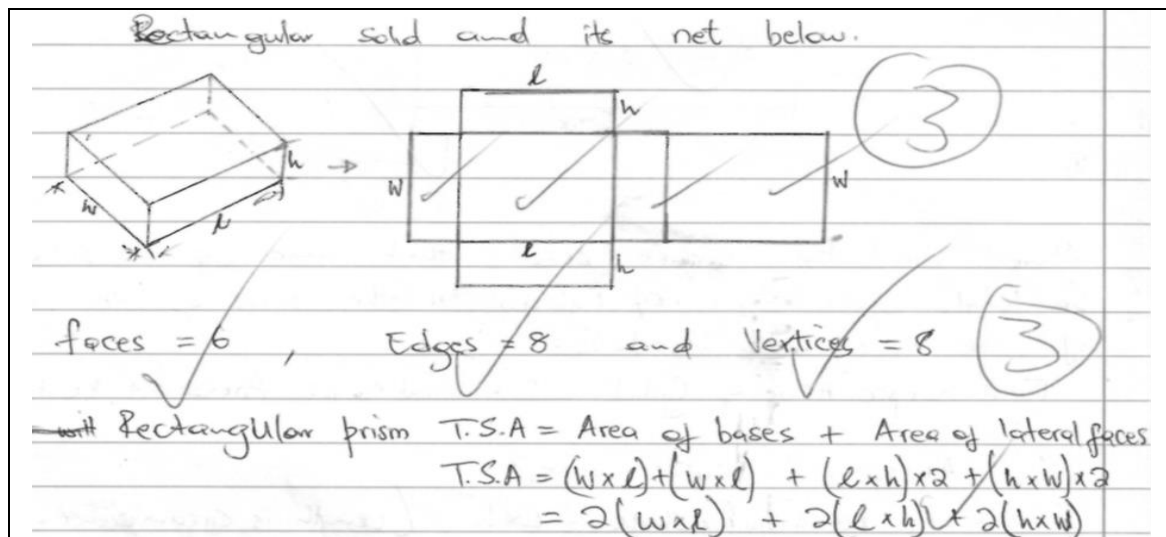 Rectangular solid and its net below.
l
h
3
h
w
l
w
w
l
h
faces = 6 , Edges = 8 and Vertices = 8
3
Rectangular prism T.S.A = Area of bases + Area of lateral faces
T.S.A = (w×l)+(w×l) + (l×h)×2 + (h×w)×2
= 2(w×l) + 2(l×h) + 2(h×w)